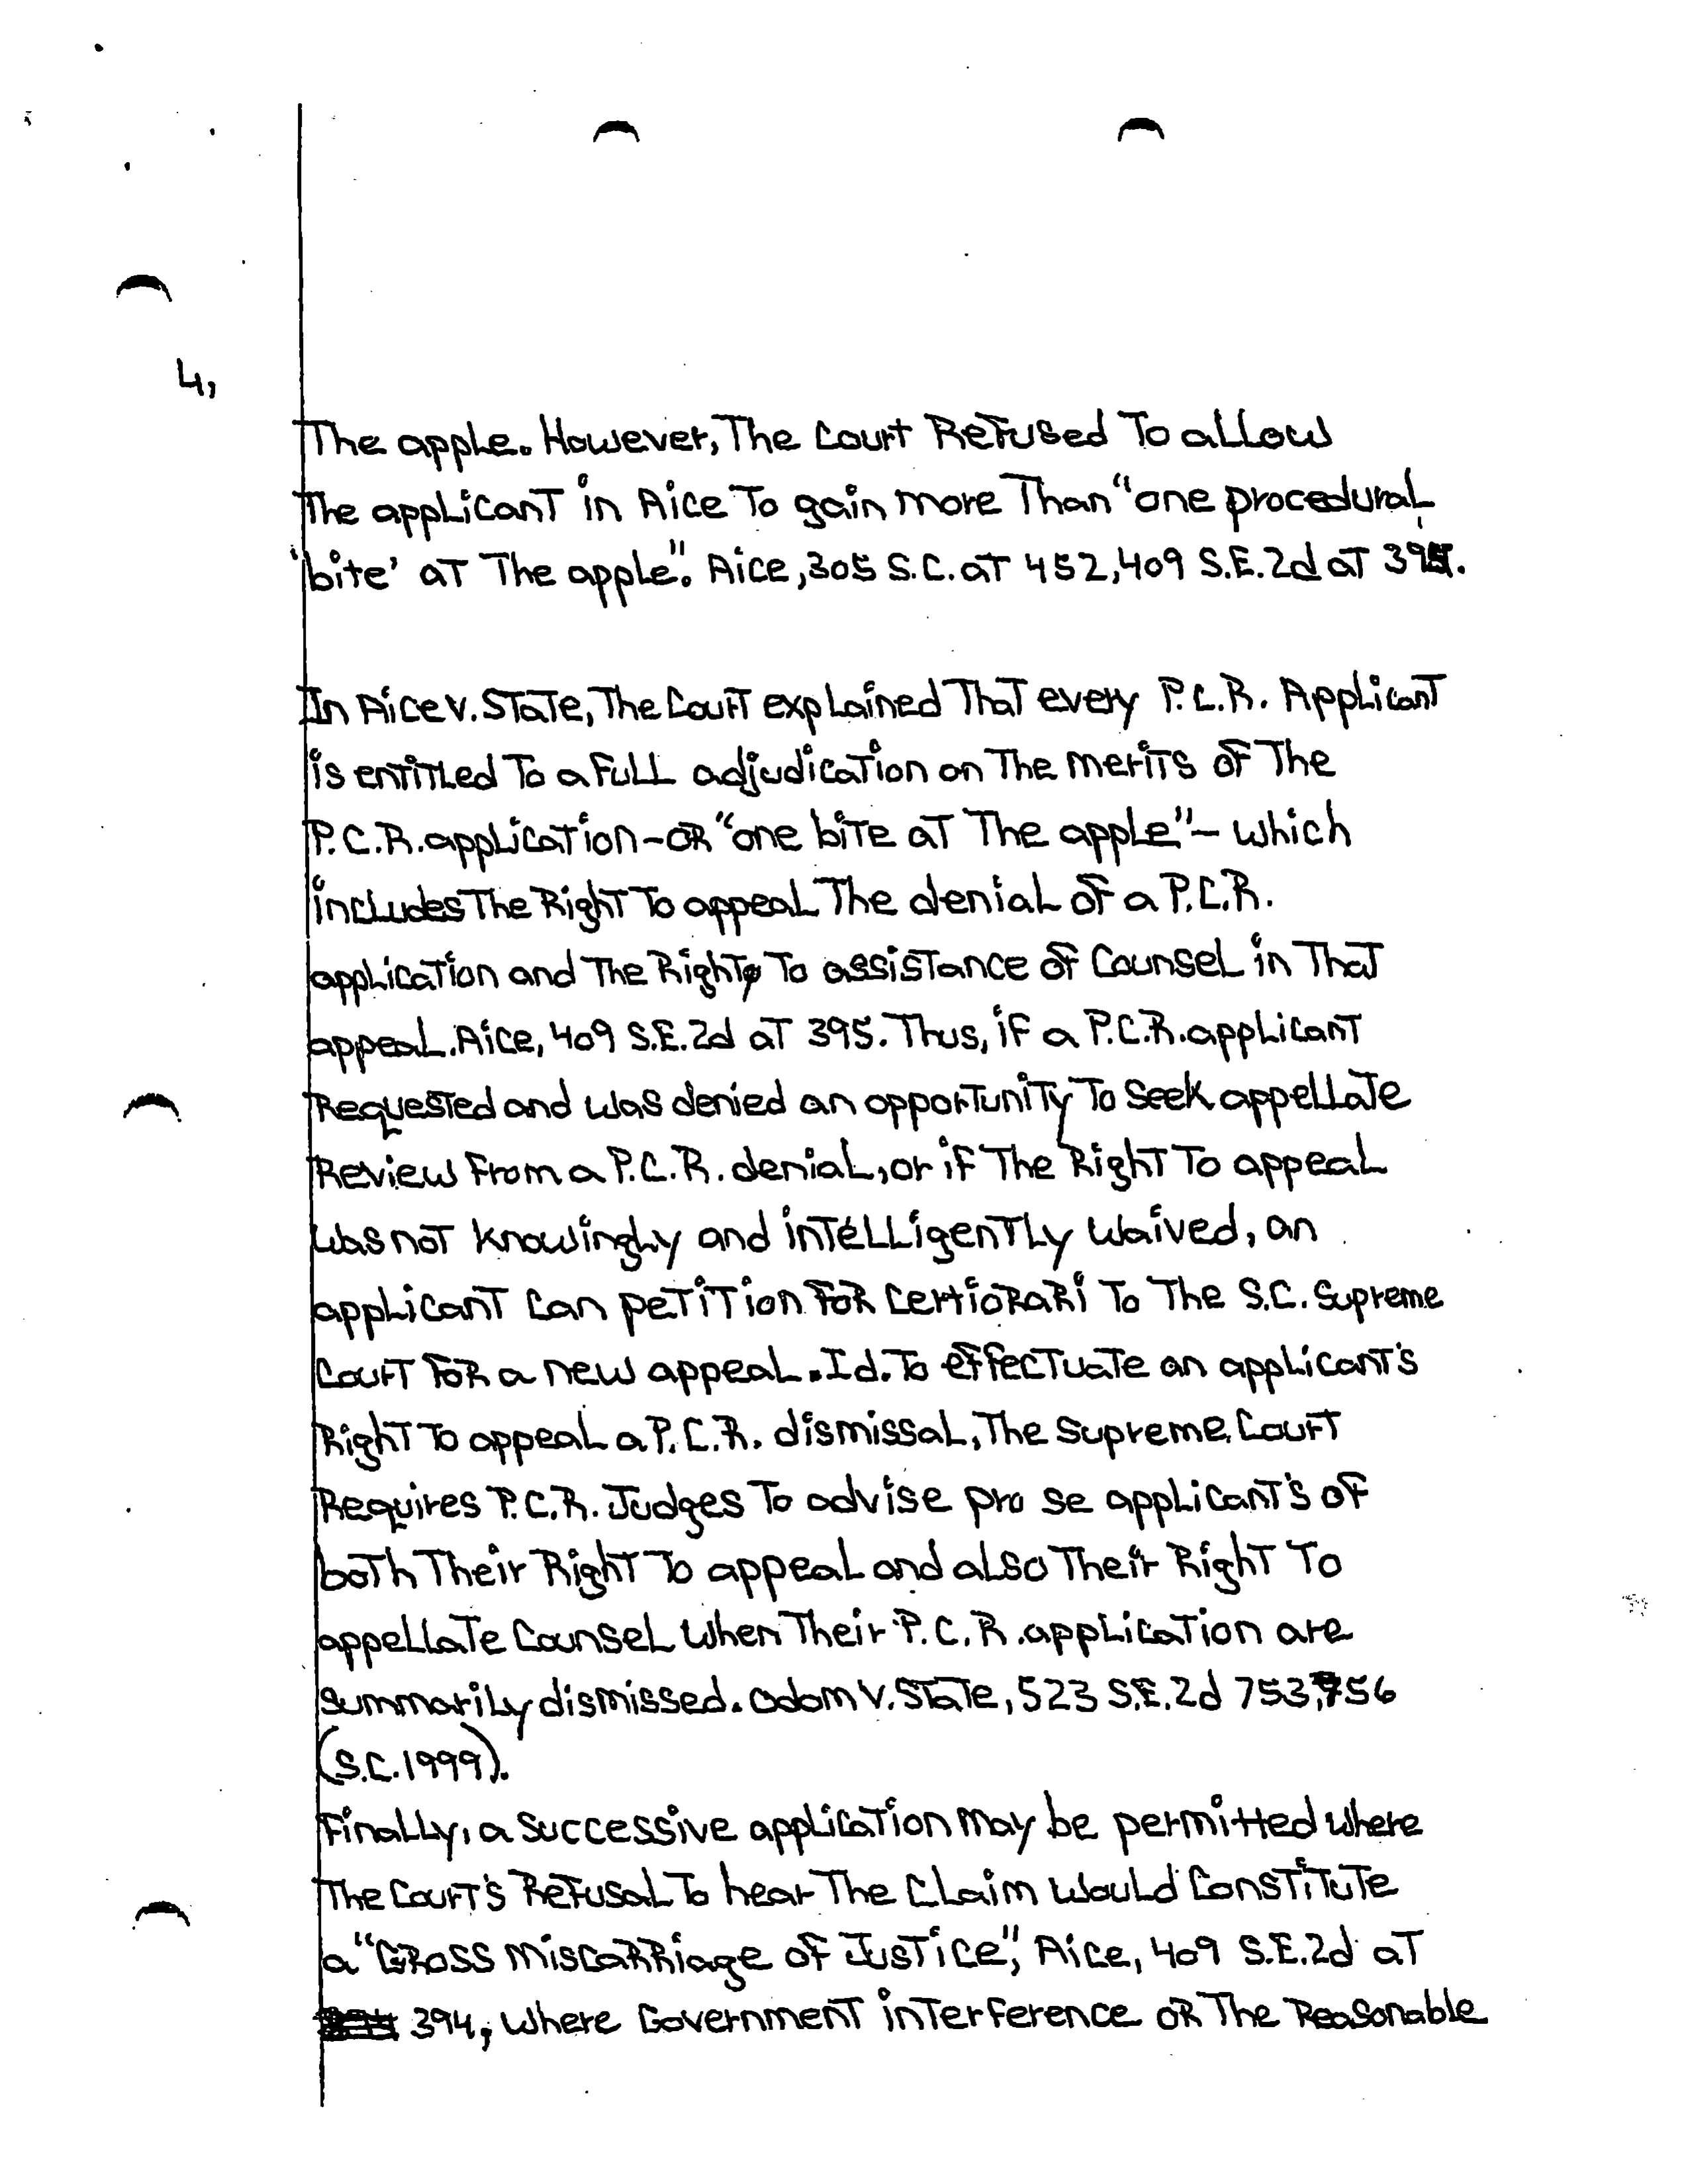 4,
The apple. However, The Court Refused To allow
The applicant in Aice To gain more Than "one procedural
'bite' at The apple". Aice, 305 S.C. at 452, 409 S.E.2d at
In Aice v. State, The Court explained That every P.C.R. Applicant
is entitled To a full adjudication on The merits of The
P.C.R. application - or "one bite at The apple" - which
includes The Right To appeal The denial of a P.C.R.
application and The Right To assistance of Counsel in That
appeal. Aice, 409 S.E.2d at 395. Thus, if a P.C.R. applicant
Requested and was denied an opportunity To Seek appellate
Review From a P.C.R. denial, or if The Right To appeal
was not knowingly and intelligently waived, an
applicant can petition For Certiorari To The S.C. Supreme
Court For a new appeal. Id. To effectuate an applicant's
Right To appeal a P.C.R. dismissal, The Supreme Court
Requires P.C.R. Judges To advise pro se applicant's of
both Their Right To appeal and also Their Right To
appellate Counsel when Their P.C.R. application are
summarily dismissed. Odom v. State, 523 S.E.2d 753, 756
(S.C. 1999).
Finally, a Successive application may be permitted where
The Court's Refusal To hear The Claim would Constitute
a "Gross Miscarriage of Justice", Aice, 409 S.E.2d at
394, where Government interference or The Reasonable